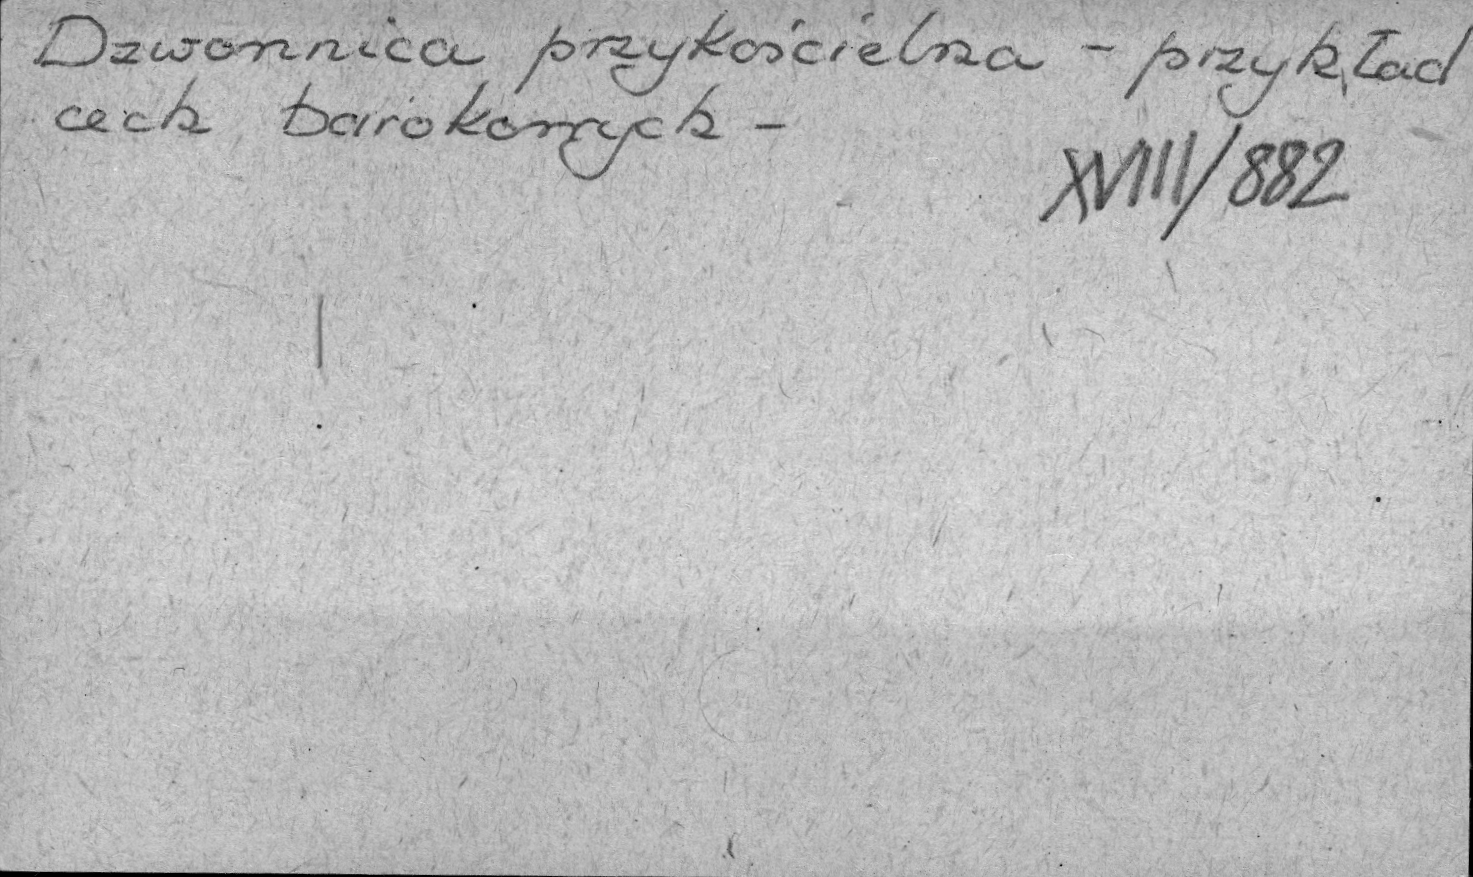 Dzwonnica przykościelna - przykład
cech barokowych -
XVIII/882